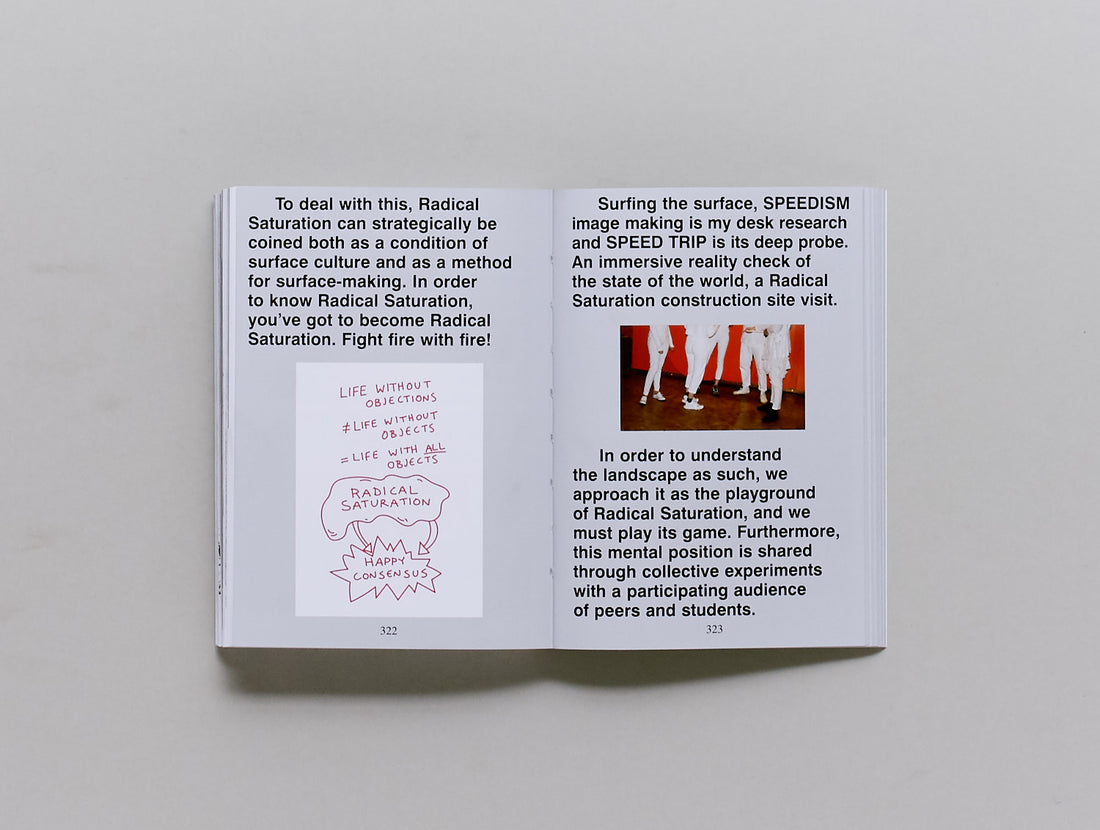 To deal with this, Radical
Saturation can strategically be
coined both as a condition of
surface culture and as a method
for surface-making. In order
to know Radical Saturation,
you've got to become Radical
Saturation. Fight fire with fire!
LIFE WITHOUT
OBJECTIONS
≠ LIFE WITHOUT
OBJECTS
= LIFE WITH ALL
OBJECTS
RADICAL
SATURATION
HAPPY
CONSENSUS
322
Surfing the surface, SPEEDISM
image making is my desk research
and SPEED TRIP is its deep probe.
An immersive reality check of
the state of the world, a Radical
Saturation construction site visit.
In order to understand
the landscape as such, we
approach it as the playground
of Radical Saturation, and we
must play its game. Furthermore,
this mental position is shared
through collective experiments
with a participating audience
of peers and students.
323